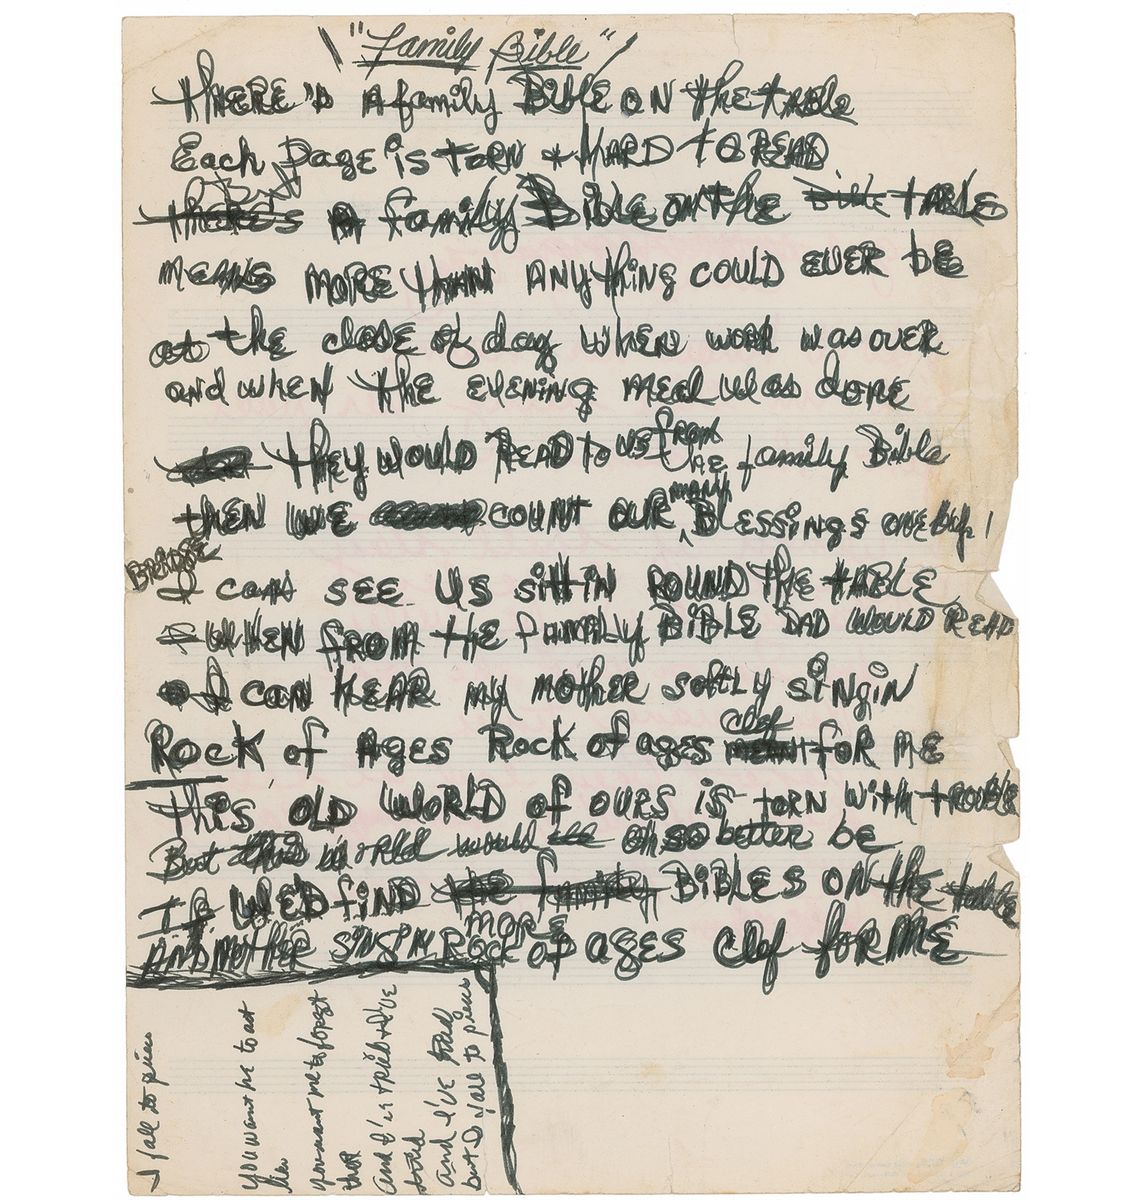 "Family Bible"
There's A family Bible on the table
Each page is torn & HARD to READ
But
theres A family Bible on the Bible tABLE
MEANS MORE THAN ANYthiNG COULD EVER bE
at the close of day WHEN work was over
and when the EVENiNg MEAL was done
they would READ to us from the family Bible
then we count our many Blessings one by 1
I can see us sittin round the table
WHEN from the family BiBLE DAD WOULD READ
I can HEAR my mother softly singin
ROCK of Ages Rock of ages clef for me
This old world of ours is torn with trouble
But this world would oh so better be
If we'd find more the family BiBLES ON the table
AND MOTHER SiNgin Rock of ages clef for me
I fall to pieces
you want me to act
like
you want me to forget
that
and I've tried & I've
tried
and I've tried
but I fall to pieces